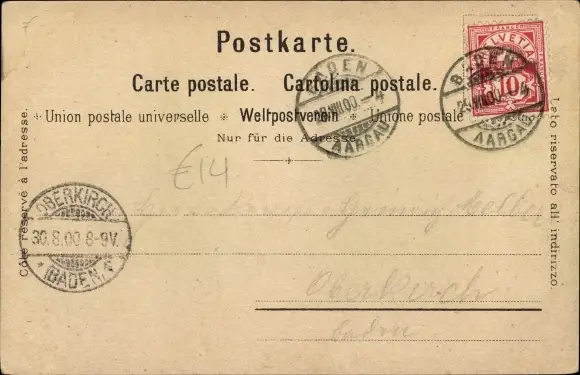 Postkarte.
Carte postale. Cartolina postale.
Union postale universelle Weltpostverein Unione postale
Nur für die Adresse.
Côté réservé à l'adresse.
Lato riservato all' indirizzo.
FRANCO
HELVETIA
10
BADEN
AARGAU
BADEN
AARGAU
€14
OBERKIRCH
30.8.00 8-9V.
(BADEN)
Oberkirch
Baden